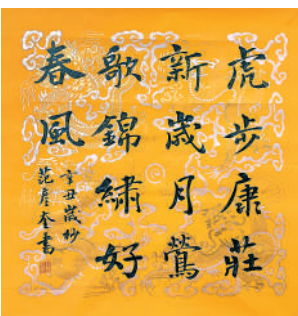 虎步康莊
新歲月鶯
歌錦繡好
春風
辛丑歲杪
范彦奎書